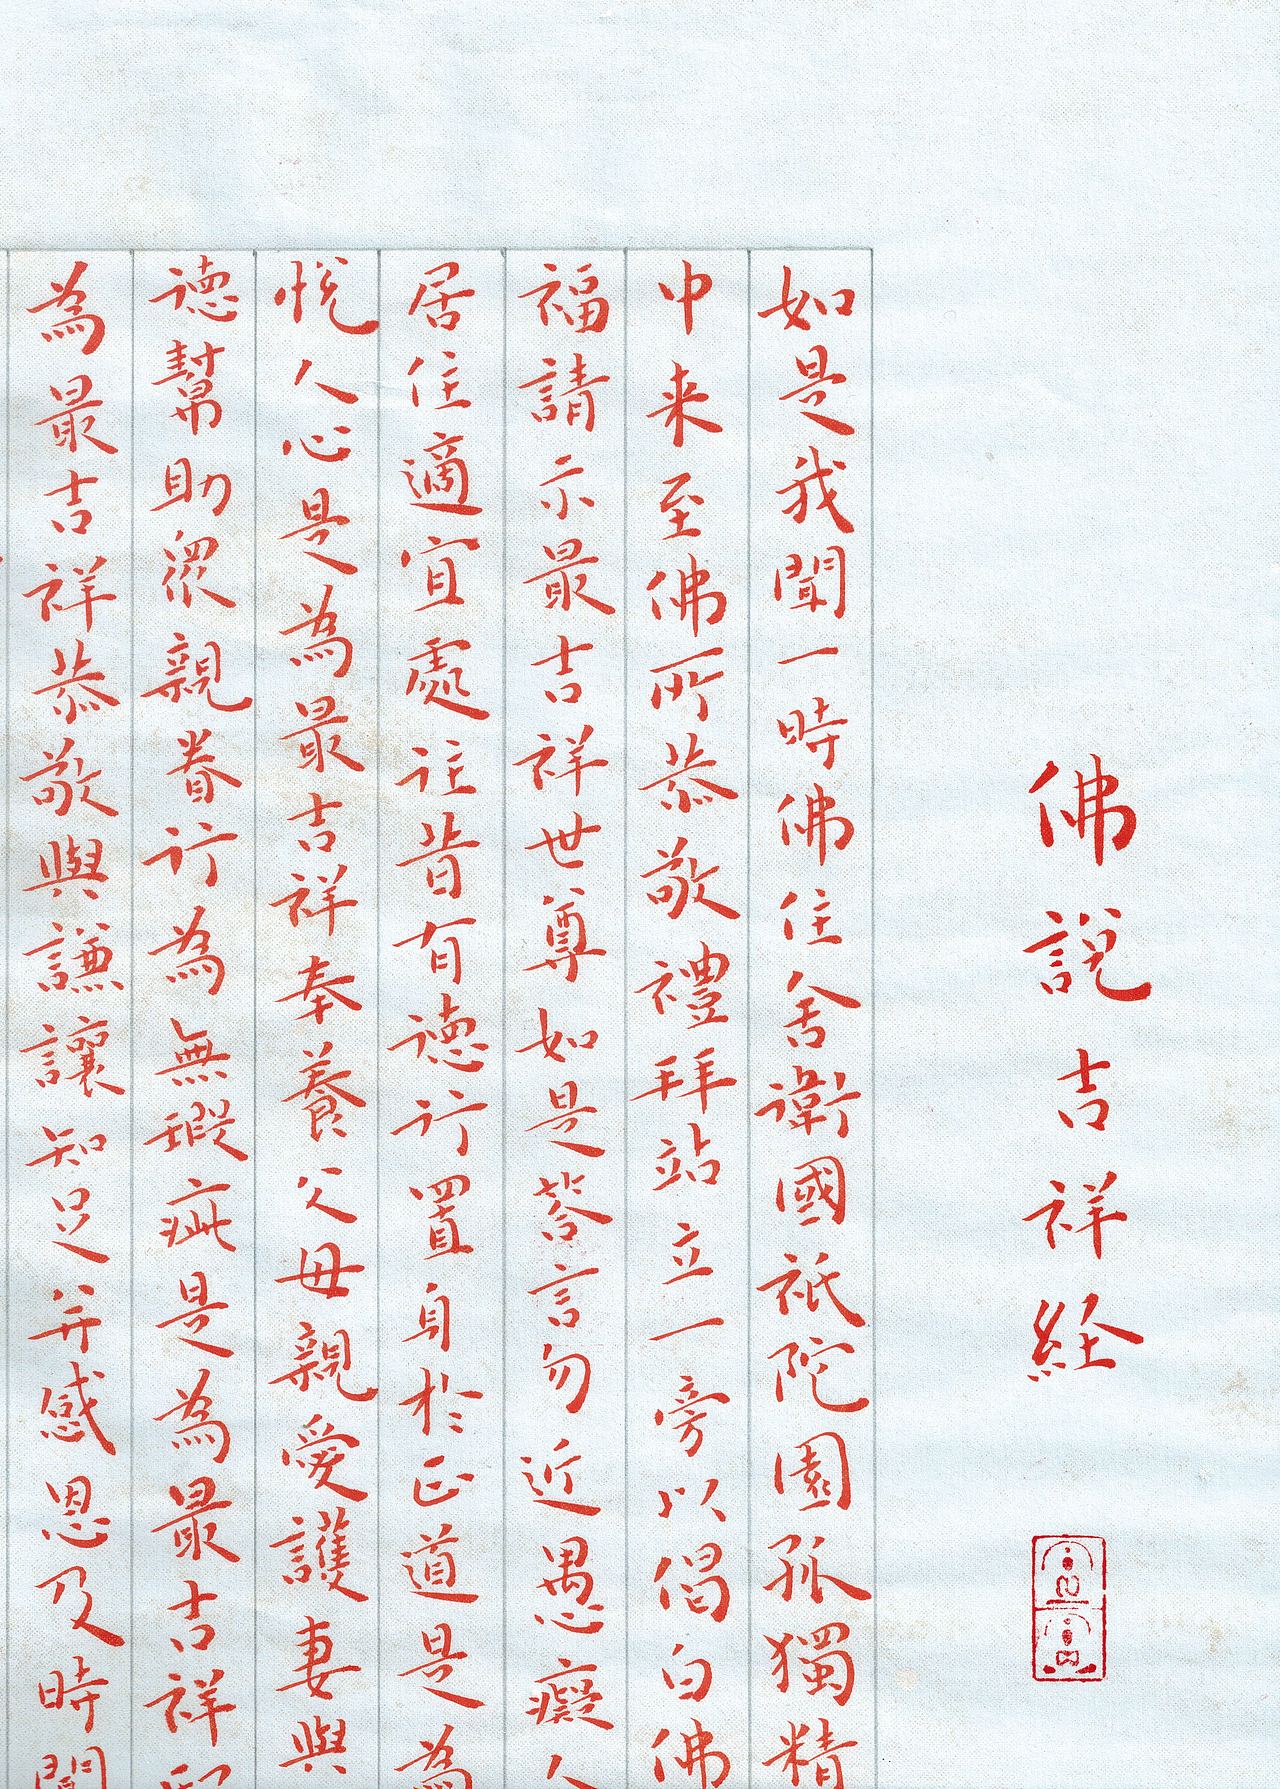 佛說吉祥経
如是我聞一時佛住舍衛國祇陀園孤獨精
中来至佛所恭敬禮拜站立一旁以偈白佛
福請示最吉祥世尊如是答言勿近愚癡人
居住適宜處往昔有德行置身於正道是為
悅人心是為最吉祥奉養父母親愛護妻與
德幫助眾親眷行為無瑕疵是為最吉祥邪
為最吉祥恭敬與謙讓知足并感恩及時聞